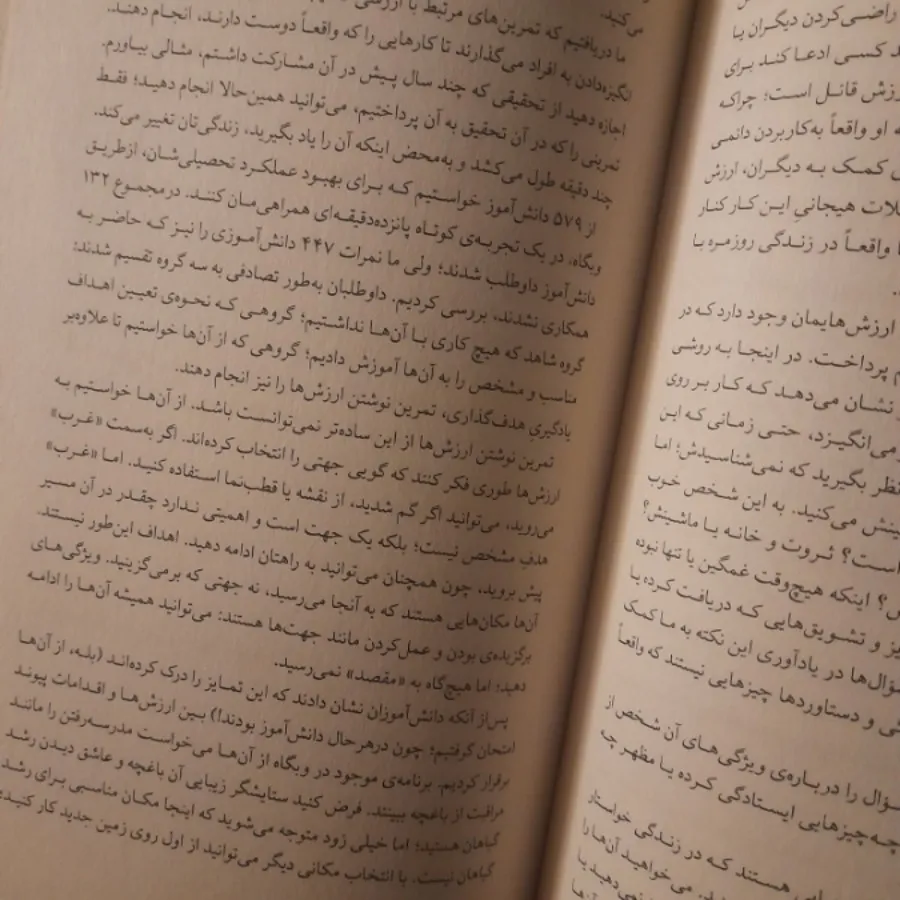 می‌کنید.
ما دریافتیم که تمرین‌های مرتبط با
انگیزه‌دادن به افراد می‌گذارند تا کارهایی را که واقعاً دوست دارند، انجام دهند.
اجازه دهید از تحقیقی که چند سال پیش در آن مشارکت داشتم، مثالی بیاورم.
تمرینی را که در آن تحقیق به آن پرداختیم، می‌توانید همین‌حالا انجام دهید؛ فقط
چند دقیقه طول می‌کشد و به‌محض اینکه آن را یاد بگیرید، زندگی‌تان تغییر می‌کند.
از ۵۷۹ دانش‌آموز خواستیم که برای بهبود عملکرد تحصیلی‌شان، ازطریق
وبگاه، در یک تجربه‌ی کوتاه پانزده‌دقیقه‌ای همراهی‌مان کنند. درمجموع ۱۳۲
دانش‌آموز داوطلب شدند؛ ولی ما نمرات ۴۴۷ دانش‌آموزی را نیز که حاضر به
همکاری نشدند، بررسی کردیم. داوطلبان به‌طور تصادفی به سه گروه تقسیم شدند:
گروه شاهد که هیچ کاری با آن‌ها نداشتیم؛ گروهی که نحوه‌ی تعیین اهداف
مناسب و مشخص را به آن‌ها آموزش دادیم؛ گروهی که از آن‌ها خواستیم تا علاوه‌بر
یادگیریِ هدف‌گذاری، تمرین نوشتن ارزش‌ها را نیز انجام دهند.
تمرین نوشتن ارزش‌ها از این ساده‌تر نمی‌توانست باشد. از آن‌ها خواستیم به
ارزش‌ها طوری فکر کنند که گویی جهتی را انتخاب کرده‌اند. اگر به‌سمت «غرب»
می‌روید، می‌توانید اگر گم شدید، از نقشه یا قطب‌نما استفاده کنید. اما «غرب»
هدفِ مشخص نیست؛ بلکه یک جهت است و اهمیتی ندارد چقدر در آن مسیر
پیش بروید، چون همچنان می‌توانید به راهتان ادامه دهید. اهداف این‌طور نیستند.
آن‌ها مکان‌هایی هستند که به آنجا می‌رسید، نه جهتی که برمی‌گزینید. ویژگی‌های
برگزیده‌ی بودن و عمل‌کردن مانند جهت‌ها هستند: می‌توانید همیشه آن‌ها را ادامه
دهید؛ اما هیچ‌گاه به «مقصد» نمی‌رسید.
پس‌از آنکه دانش‌آموزان نشان دادند که این تمایز را درک کرده‌اند (بله، از آن‌ها
امتحان گرفتیم؛ چون درهرحال دانش‌آموز بودند!) بین ارزش‌ها و اقدامات پیوند
برقرار کردیم. برنامه‌ی موجود در وبگاه از آن‌ها می‌خواست مدرسه‌رفتن را مانند
مراقبت از باغچه ببینند. فرض کنید ستایشگر زیبایی آن باغچه و عاشق دیدن رشد
گیاهان هستید؛ اما خیلی زود متوجه می‌شوید که اینجا مکان مناسبی برای رشد
گیاهان نیست. با انتخاب مکانی دیگر می‌توانید از اول روی زمین جدید کار کنید؛
راضی‌کردن دیگران با
کسی ادعا کند برای
ارزش قائل است؛ چراکه
او واقعاً به‌کاربردن دائمی
کمک به دیگران، ارزش
هیجانیِ این کار کنار
واقعاً در زندگی روزمره با
ارزش‌هایمان وجود دارد که در
پرداخت. در اینجا به روشی
نشان می‌دهد که کار بر روی
برمی‌انگیزد، حتی زمانی که این
نظر بگیرید که نمی‌شناسیدش؛ اما
می‌کنید. به این شخص خوب
است؟ ثروت و خانه یا ماشینش؟
اینکه هیچ‌وقت غمگین یا تنها نبوده
و تشویق‌هایی که دریافت کرده یا
سؤال‌ها در یادآوری این نکته به ما کمک
و دستاوردها چیزهایی نیستند که واقعاً
سؤال را درباره‌ی ویژگی‌های آن شخص از
چه‌چیزهایی ایستادگی کرده یا مظهر چه
هستند که در زندگی خواستار
می‌خواهید آن‌ها را
نمی‌دهید یا